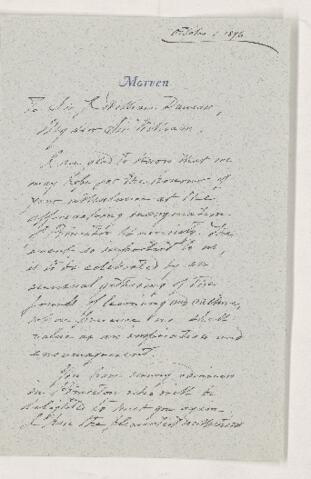 October 1, 1896
Morven
To Sir J. William Dawson,
My dear Sir William,
I am glad to know that we
may hope for the honour of
your attendance at the
approaching inauguration
of Princeton University. The
event so important to us,
is to be celebrated by an
unusual gathering of the
friends of learning and culture,
whose presence we shall
value as an inspiration and
encouragement.
You have many admirers
in Princeton who will be
delighted to meet you again.
I have the pleasantest